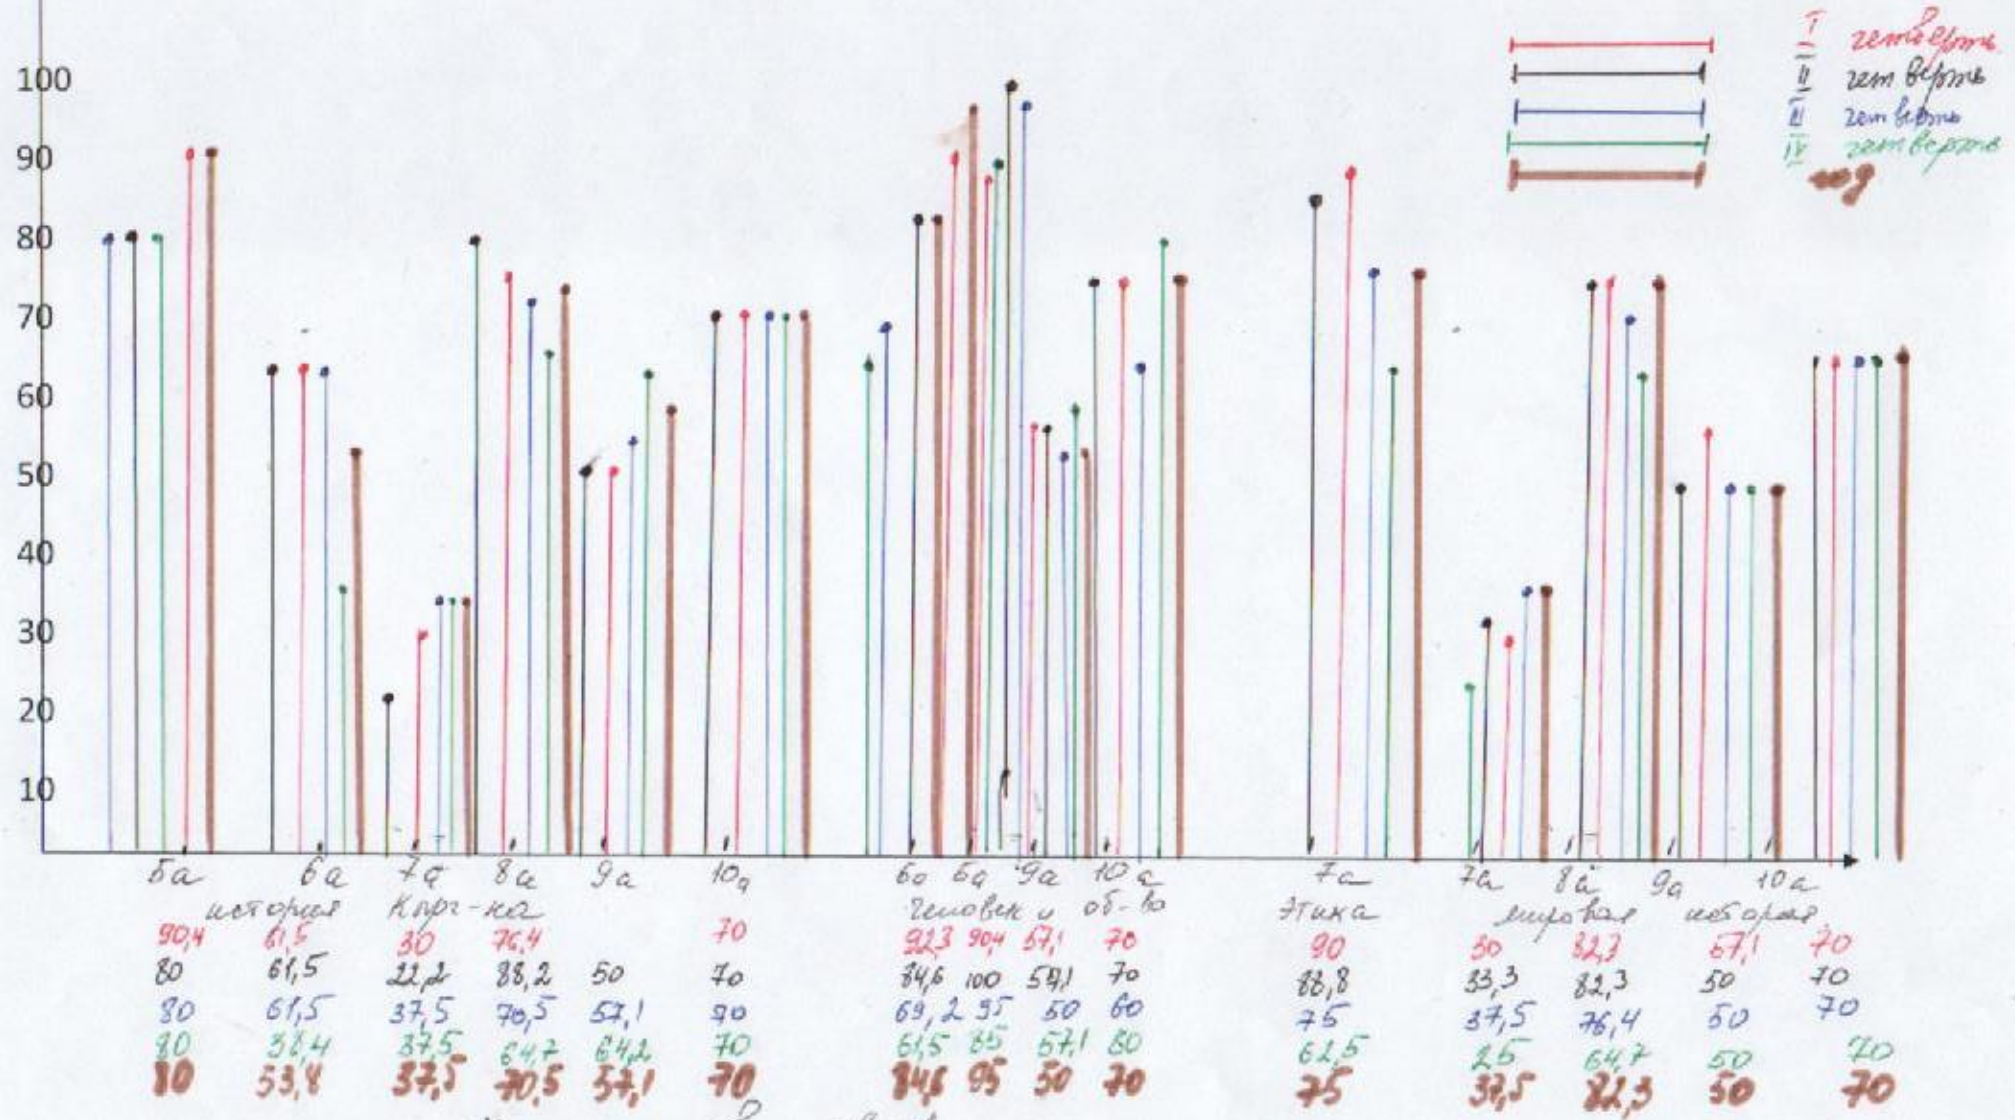 I четверть
II четверть
III четверть
IV четверть
год
100
90
80
70
60
50
40
30
20
10
5а 6а 7а 8а 9а 10а 6а 5а 9а 10а 7а 7а 8а 9а 10а
история Кырг-на человек и об-во этика мировая история
90,4 61,5 30 76,4 70 92,3 90,4 57,1 70 90 30 82,3 57,1 70
80 61,5 22,2 88,2 50 70 84,6 100 57,1 70 88,8 33,3 82,3 50 70
80 61,5 37,5 70,5 57,1 70 69,2 95 50 60 75 37,5 76,4 50 70
80 38,4 37,5 64,7 64,2 70 61,5 85 57,1 80 62,5 25 64,7 50 70
80 53,8 37,5 70,5 57,1 70 84,6 95 50 70 75 37,5 82,3 50 70